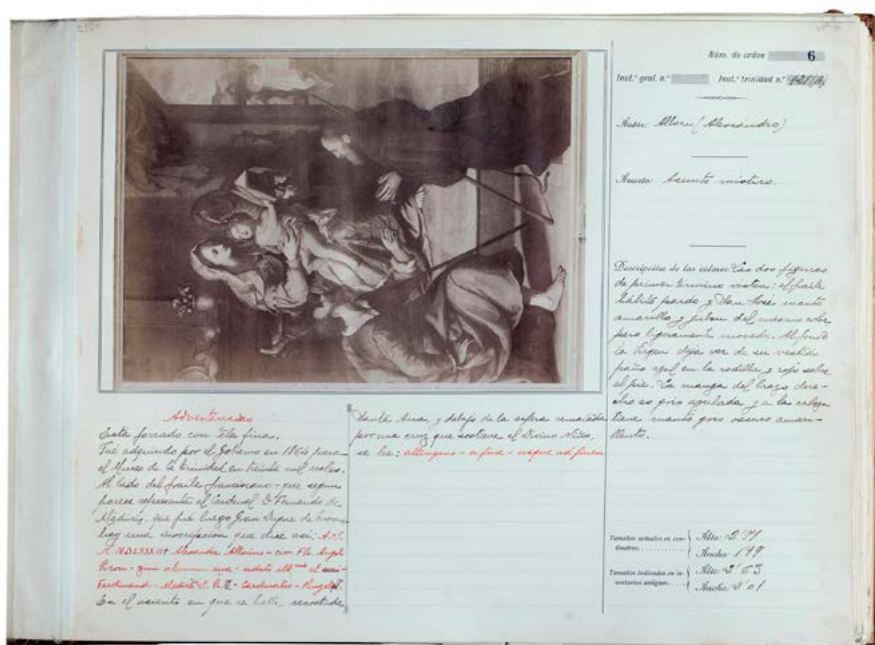 Núm. de orden 6
Inv.º gral. n.º Inv.º trinidad n.º
Autor: Allori (Alessandro)
Asunto: Asunto místico.
Descripción de los colores: Las dos figuras
de primer término visten: el fraile
hábito pardo y San José manto
amarillo y jubon del mismo color
pero ligeramente morado. Al fondo
la Virgen deja ver de su vestido
paño azul en la rodilla y rojo sobre
el pie. La manga del brazo dere-
cho es gris azulada y a la cabeza
tiene manto gris oscuro amari-
llento.
Tamaños actuales en cen-
tímetros Alto: 2'71
Ancho: 1'99
Tamaños indicados en in-
ventarios antiguos Alto: 2'63
Ancho: 2'01
Advertencias
Está forrado con tela fina.
Fué adquirido por el Gobierno en 1864 para
el Museo de la Trinidad en treinta mil reales.
Al lado del fraile franciscano - que segun
parece representa el Cardenal D. Fernando de
Médicis, que fué luego Gran Duque de
hay una inscripcion que dice asi:
Alexander Allorius - civ. Flo. Angeli
Bron - zini alumnus
Ferdinandi - Medices S. R. E. - Cardinalis
En el asiento en que se halla recostada
Santa Ana, y debajo de la esfera rematada
por una cruz que sostiene el Divino Niño,
se lee: attingens - a fine - usque ad finem